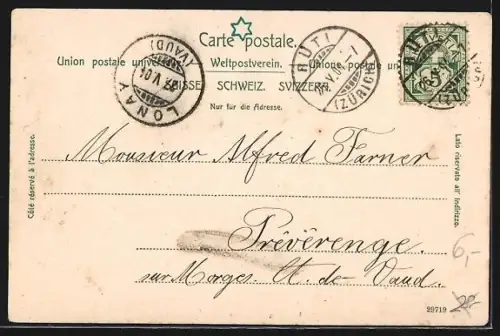 Carte postale.
Union postale universelle. Weltpostverein. Unione postale universale.
SUISSE. SCHWEIZ. SVIZZERA.
Nur für die Adresse.
LONAY
(VAUD)
RÜTI
(ZÜRICH)
RÜTI
(ZÜRICH)
Côté réservé à l'adresse.
Lato riservato all' indirizzo.
Monsieur Alfred Farner
Prévèrenge.
sur Morges Ct. de Vaud.
6,-
29719